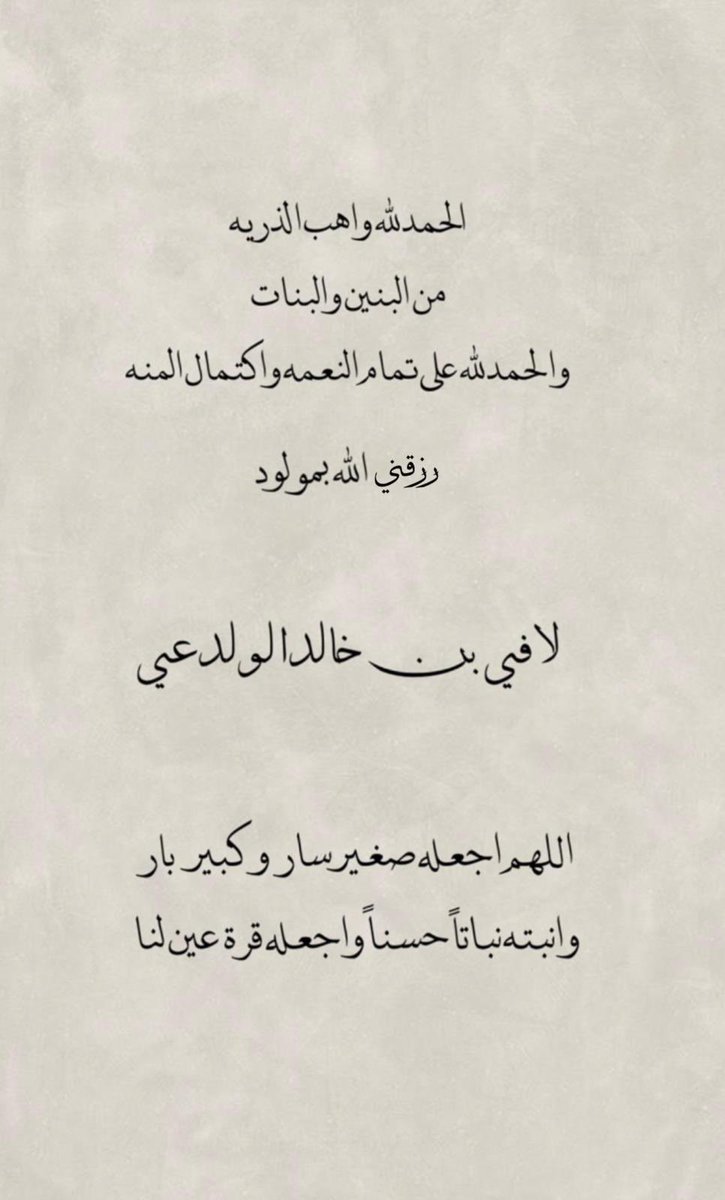 الحمدلله واهب الذريه
من البنين والبنات
والحمدلله على تمام النعمه واكتمال المنه
رزقني الله بمولود
لافي بن خالد الولدعي
اللهم اجعله صغير سار وكبير بار
وانبته نباتاً حسناً واجعله قرة عين لنا